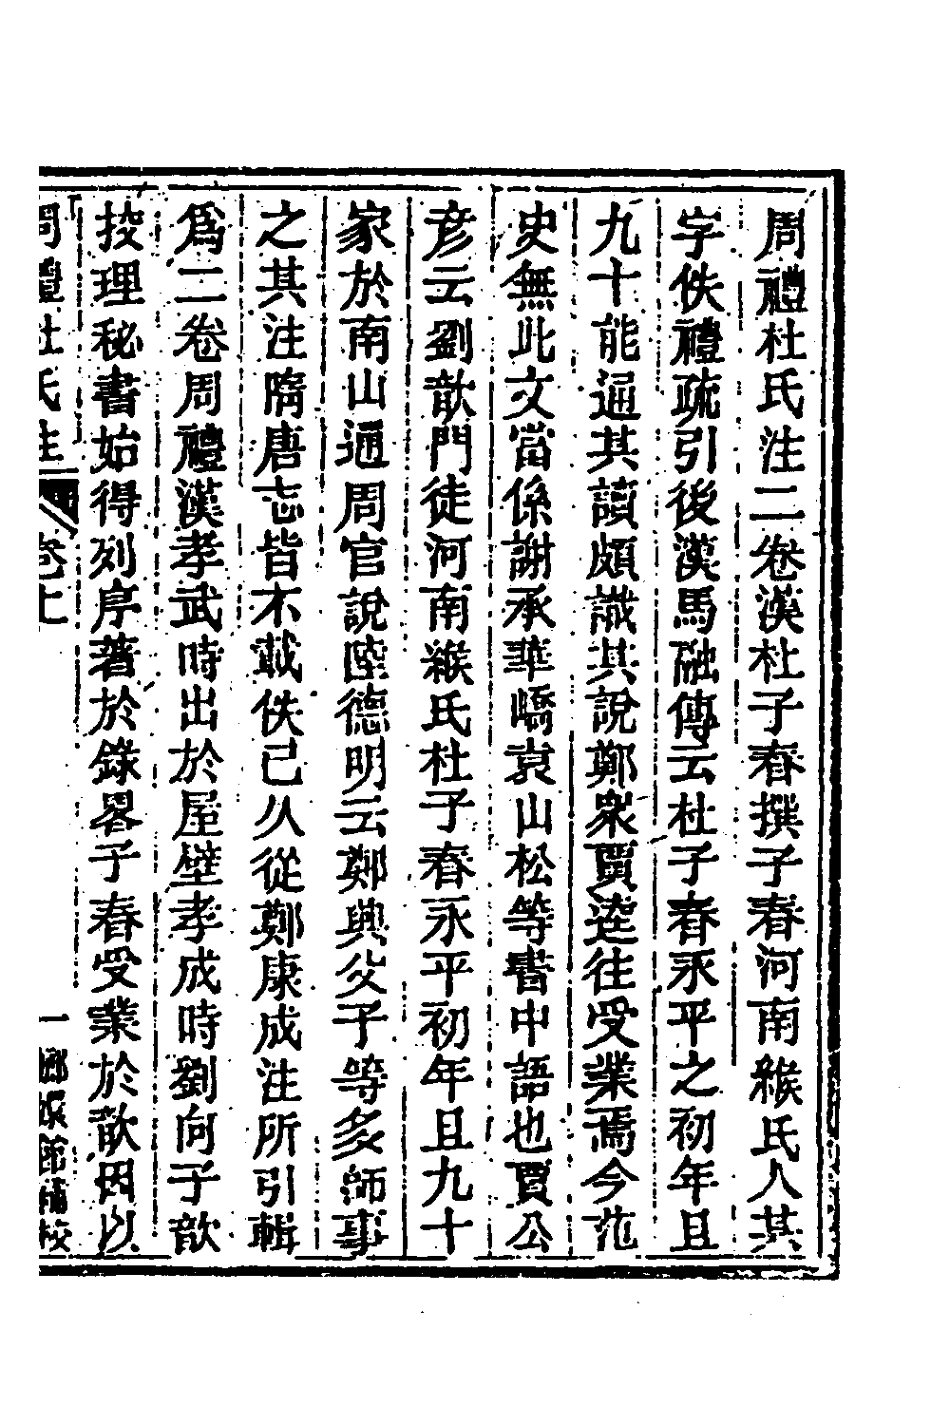 周禮杜氏注二卷漢杜子春撰子春河南緱氏人其
字佚禮疏引後漢馬融傳云杜子春永平之初年且
九十能通其讀頗識其說鄭衆賈逵往受業焉今范
史無此文當係謝承華嶠袁山松等書中語也賈公
彥云劉歆門徒河南緱氏杜子春永平初年且九十
家於南山通周官說陸德明云鄭興父子等多師事
之其注隋唐志皆不載佚已久從鄭康成注所引輯
爲二卷周禮漢孝武時出於屋壁孝成時劉向子歆
挍理秘書始得列序著於錄畧子春受業於歆因以
周禮杜氏注 卷上 一 嫏嬛館補校